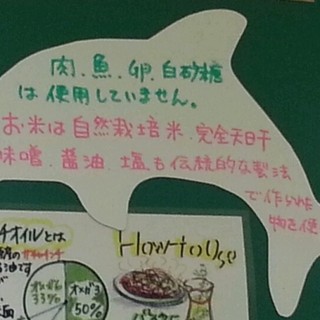 肉、魚、卵、白砂糖
は使用していません。
お米は自然栽培米、完全天日干
味噌、醤油、塩も伝統的な製法
で作られた
物を使
チオイルとは
How to Use
オメガ6
33%
オメガ3
50%